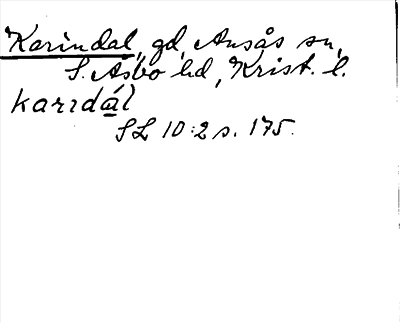 Karindal, gd, Ansås sn,
S. Åsbo hd, Krist. l.
karıdál
SL 10:2 s. 175.